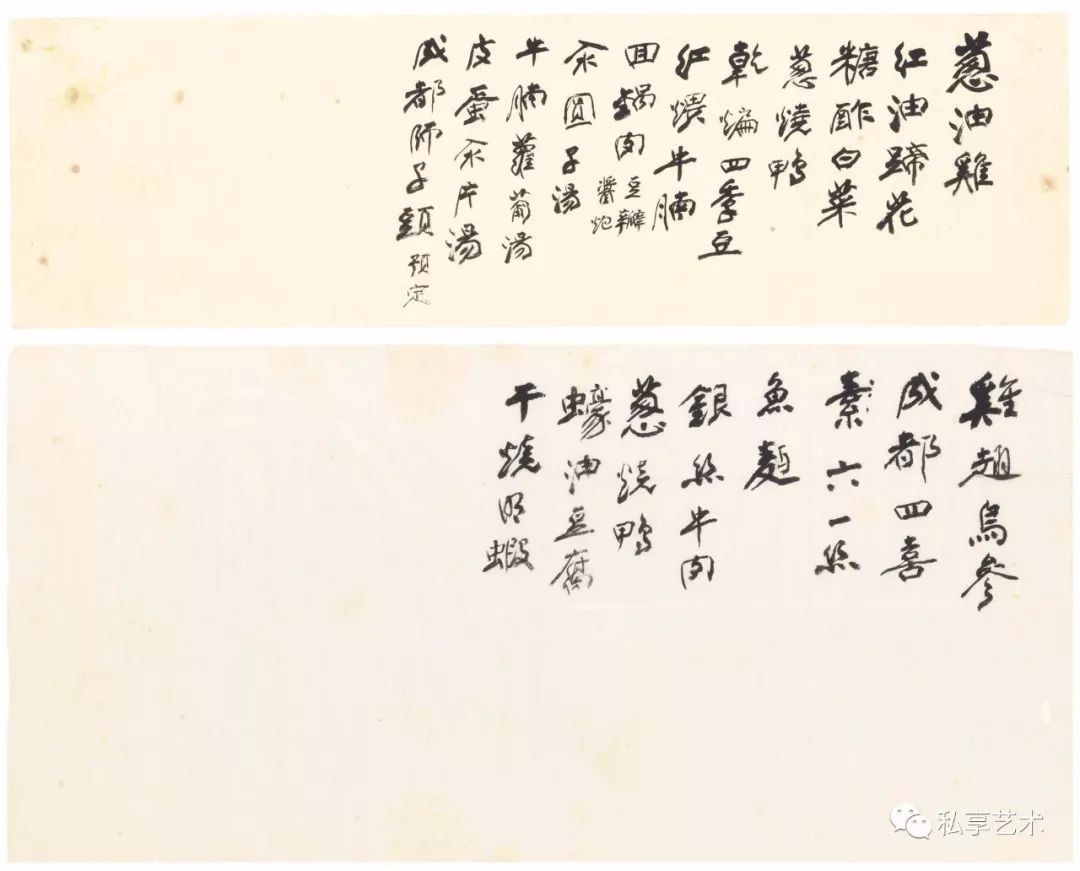 蔥油雞
紅油蹄花
糖酢白菜
蔥燒鴨
乾煸四季豆
紅煨牛腩
回鍋肉 豆瓣 醬炮
汆圓子湯
牛腩蘿蔔湯
皮蛋汆片湯
成都師子頭 預定
雞翅烏參
成都四喜
素六一絲
魚麵
銀絲牛肉
蔥燒鴨
蠔油豆腐
干燒明蝦
私享艺术